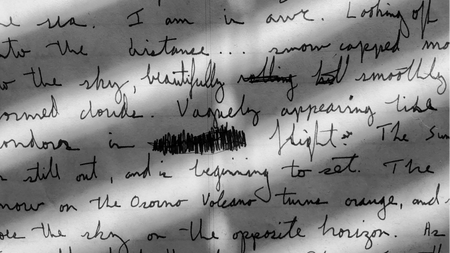 e sea. I am in awe. Looking off
into the distance... snow capped mo
the sky, beautifully rolling smoothly
ormed clouds. Vaguely appearing like
ondors in flight. The Sun
still out, and is beginning to set. The
now on the Osorno Volcano turns orange, and
the sky on the opposite horizon. As